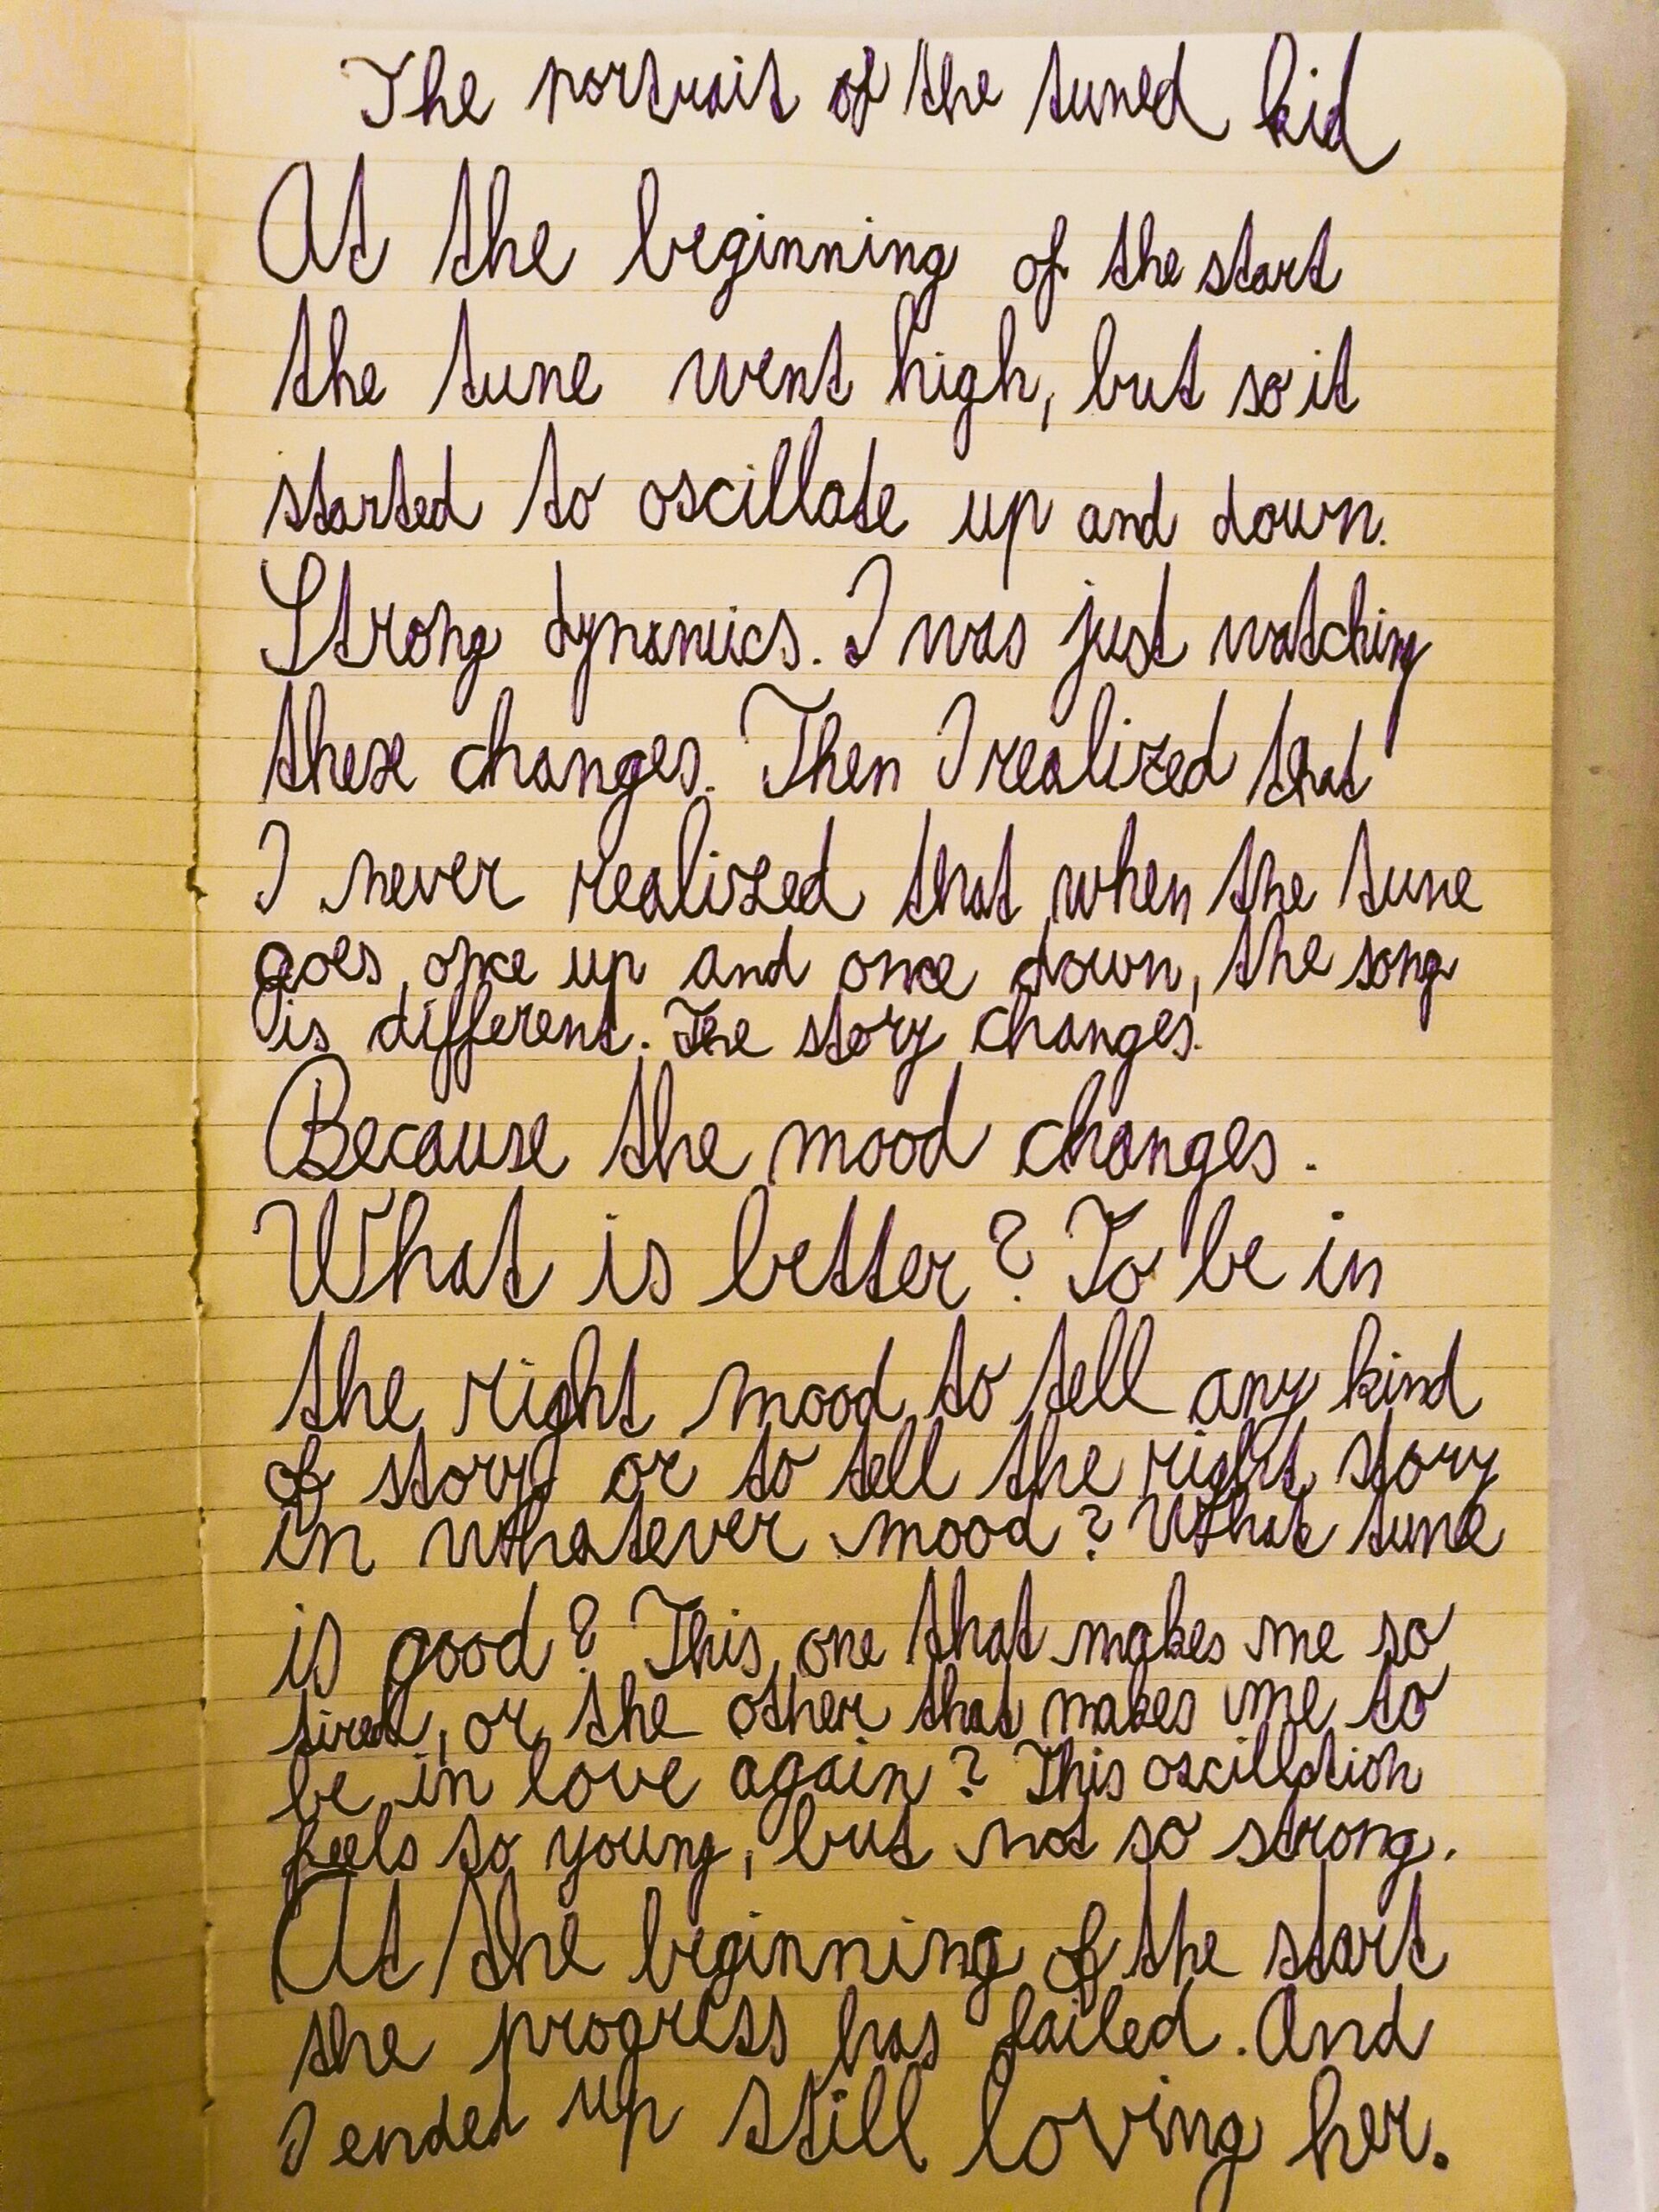 The portrait of the tuned kid
At the beginning of the start
the tune went high, but so it
started to oscillate up and down.
Strong dynamics. I was just watching
these changes. Then I realized that
I never realized that when the tune
goes once up and once down, the song
is different. The story changes.
Because the mood changes.
What is better? To be in
the right mood to tell any kind
of story or to tell the right story
in whatever mood? What tune
is good? This one that makes me so
tired, or the other that makes me to
be in love again? This oscillation
feels so young, but not so strong.
At the beginning of the start
the progress has failed. And
I ended up still loving her.